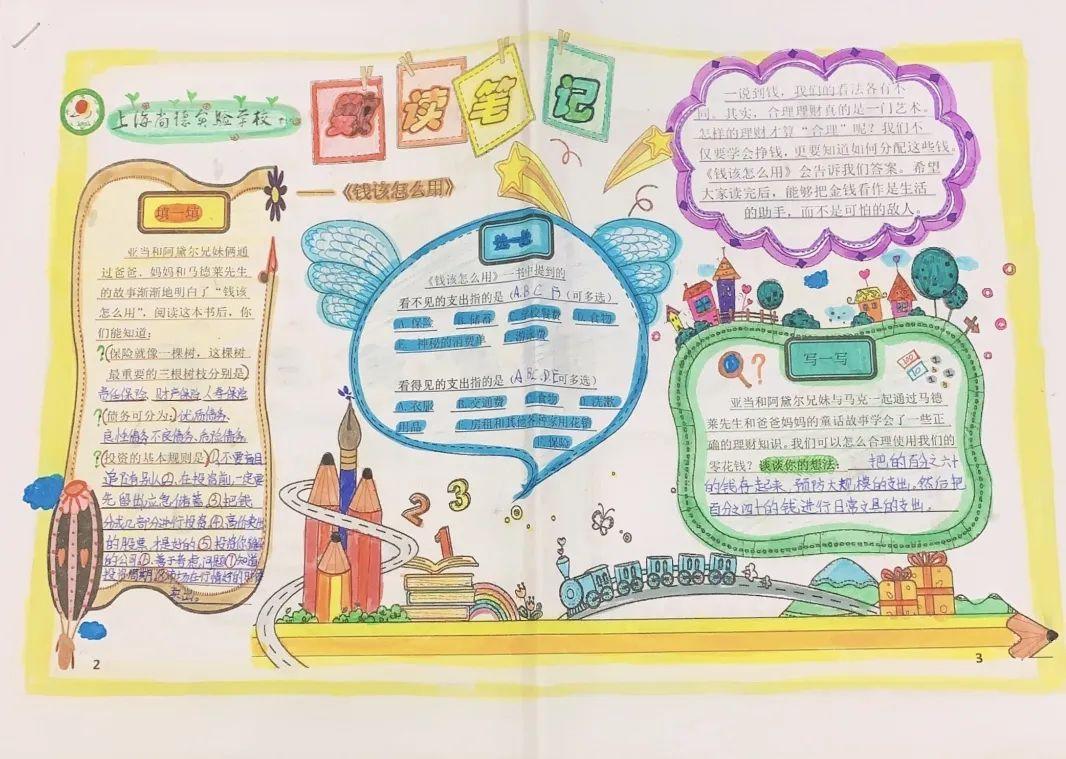 上海尚德实验学校
数读笔记
——《钱该怎么用》
填一填
亚当和阿黛尔兄妹俩通
过爸爸、妈妈和马德莱先生
的故事渐渐地明白了“钱该
怎么用”，阅读这本书后，你
们能知道：
?(保险就像一棵树，这棵树
最重要的三根树枝分别是)
责任保险、财产保险、人寿保险
?(债务可分为:)优质债务、
良性债务、不良债务、危险债务
?(投资的基本规则是)①不要盲目
追随别人②.在投资前,一定要
先留出应急储蓄③把钱
分成几部分进行投资④高价卖出
的股票,才是好的⑤投资你
的公司⑥.善于考虑问题⑦知道
投资周期⑧
卖出。
选一选
《钱该怎么用》一书中提到的
看不见的支出指的是（A.B.C.F）(可多选)
A.保险 B.储蓄 C.学校餐费 D.食物
E.神秘的消费单 F.消费
看得见的支出指的是（A.B.C.D.E可多选）
A.衣服 B.交通费 C.食物 D.洗漱
用品 E.房租和其他各种家用花销
F.保险
1 2 3
一说到钱，我们的看法各有不
同。其实，合理理财真的是一门艺术。
怎样的理财才算“合理”呢？我们不
仅要学会挣钱，更要知道如何分配这些钱。
《钱该怎么用》会告诉我们答案。希望
大家读完后，能够把金钱看作是生活
的助手，而不是可怕的敌人。
写一写
100
亚当和阿黛尔兄妹与马克一起通过马德
莱先生和爸爸妈妈的童话故事学会了一些正
确的理财知识。我们可以怎么合理使用我们的
零花钱？谈谈你的想法： 把的百分之六十
的钱存起来，预防大规模的支出，然后把
百分之四十的钱进行日常文具的支出。
2
3